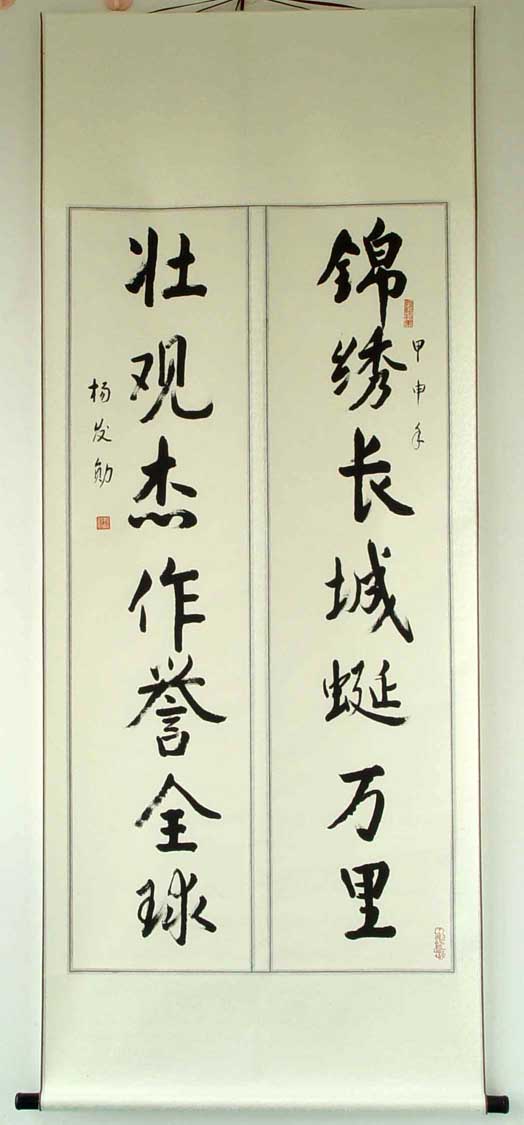 锦绣长城蜒万里
甲申年
壮观杰作誉全球
杨发勋